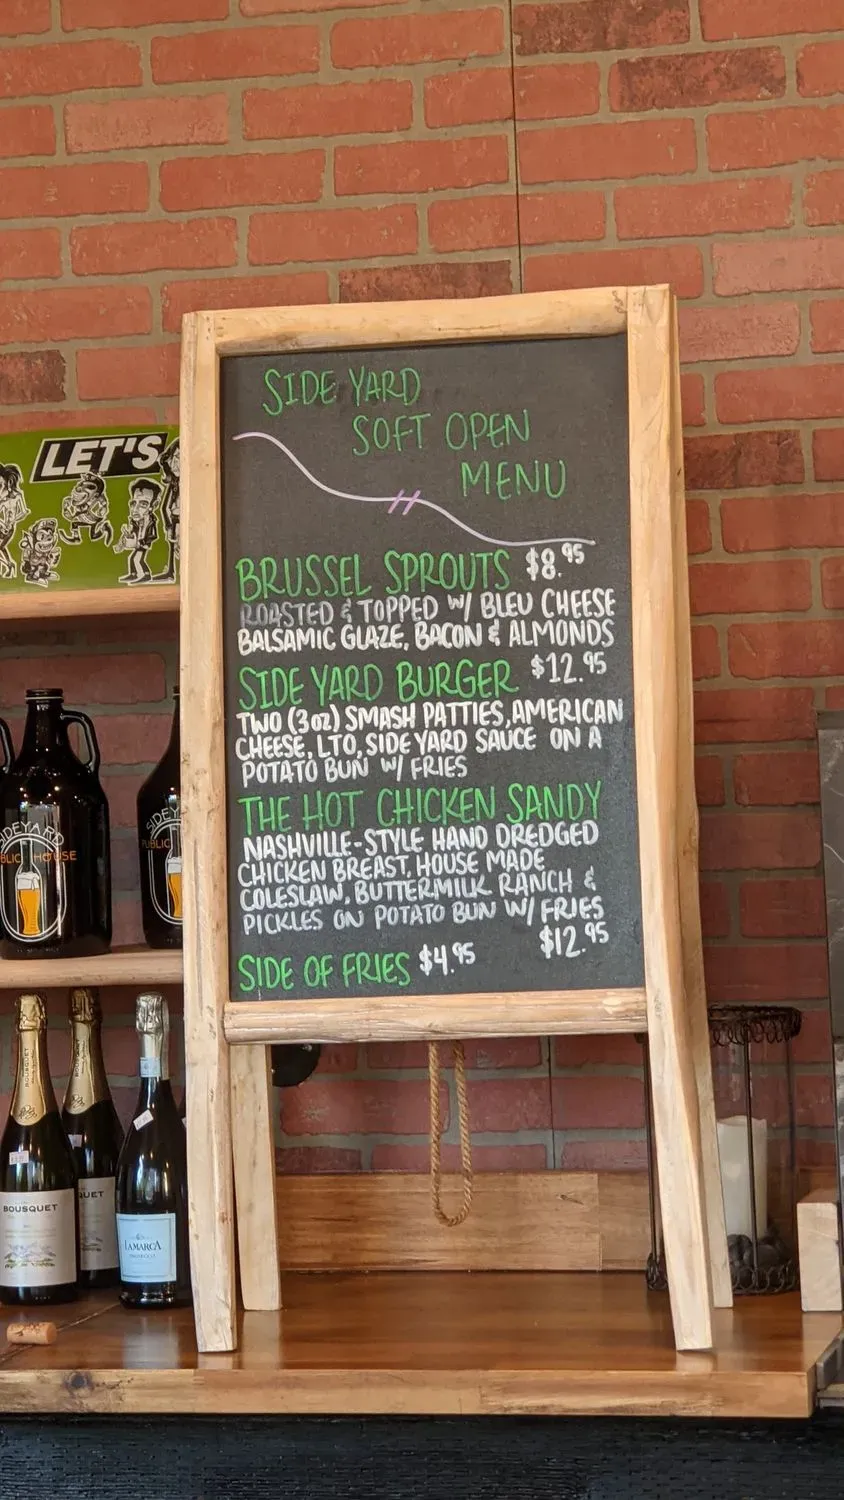 SIDE YARD
SOFT OPEN
MENU
BRUSSEL SPROUTS $8.95
ROASTED & TOPPED W/ BLEU CHEESE
BALSAMIC GLAZE, BACON & ALMONDS
SIDE YARD BURGER $12.95
TWO (3oz) SMASH PATTIES, AMERICAN
CHEESE, LTO, SIDE YARD SAUCE ON A
POTATO BUN W/ FRIES
THE HOT CHICKEN SANDY
NASHVILLE-STYLE HAND DREDGED
CHICKEN BREAST, HOUSE MADE
COLESLAW, BUTTERMILK RANCH &
PICKLES ON POTATO BUN W/ FRIES
$12.95
SIDE OF FRIES $4.95
LET'S
SIDEYARD
PUBLIC HOUSE
SIDEYARD
PUBLIC HOUSE
BOUSQUET
QUET
LAMARCA
PROSECCO